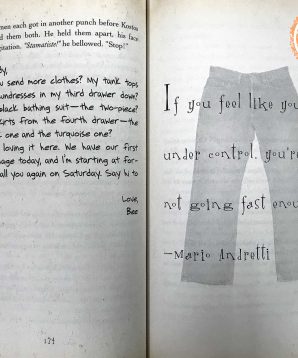 men each got in another punch before Kostos
them both. He held them apart, his face
"Stamatiste!" he bellowed. "Stop!"
send more clothes? My tank tops
sundresses in my third drawer down?
black bathing suit—the two-piece?
skirts from the fourth drawer—the
one and the turquoise one?
loving it here. We have our first
today, and I'm starting at for-
all you again on Saturday. Say hi to
Love,
Bee
124
If you feel like you
under control, you're
not going fast enou
—Mario Andretti